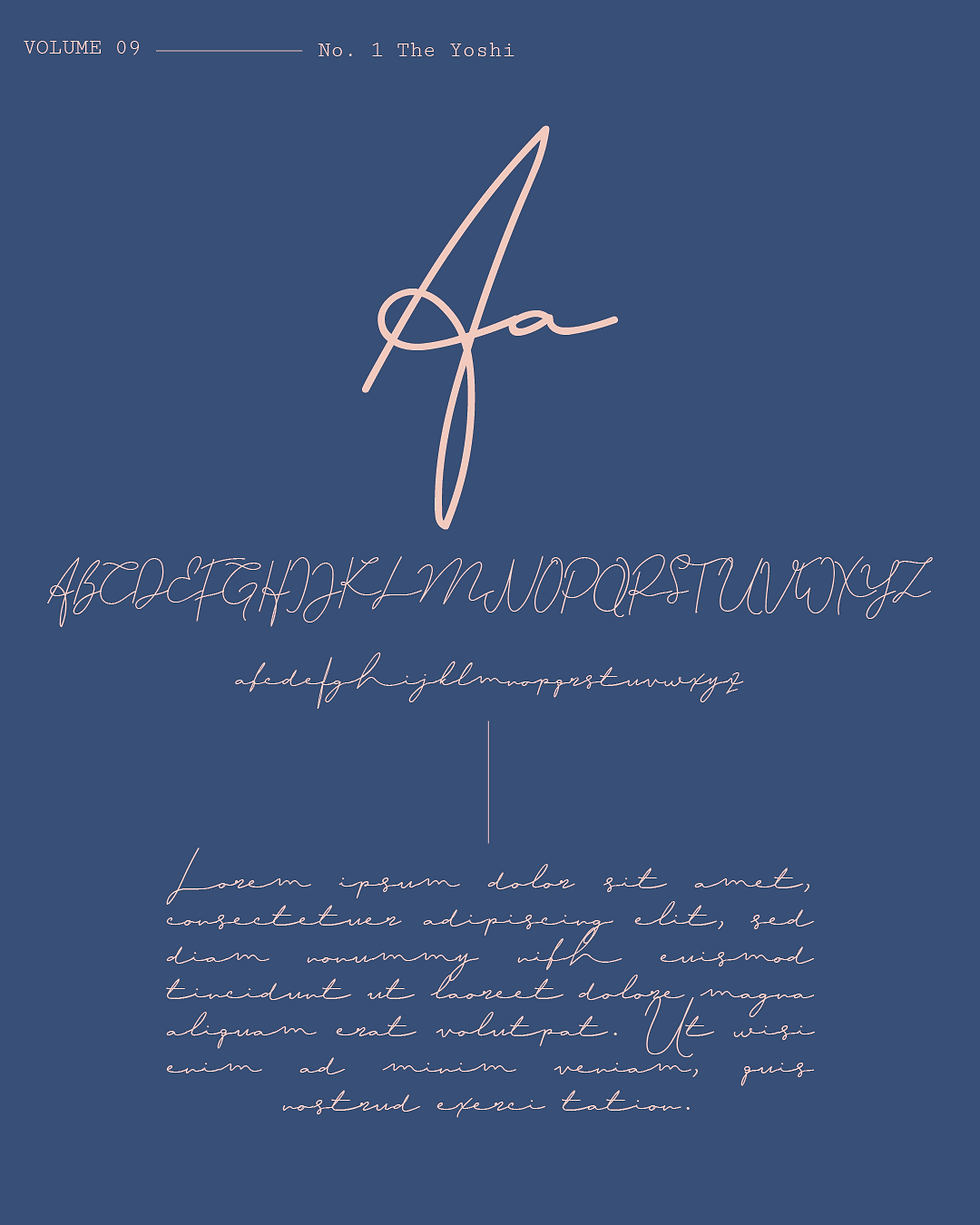 VOLUME 09 No. 1 The Yoshi
Aa
ABCDEFGHIJKLMNOPQRSTUVWXYZ
abcdefghijklmnopqrstuvwxyz
Lorem ipsum dolor sit amet,
consectetuer adipiscing elit, sed
diam nonummy nibh euismod
tincidunt ut laoreet dolore magna
aliquam erat volutpat. Ut wisi
enim ad minim veniam, quis
nostrud exerci tation.